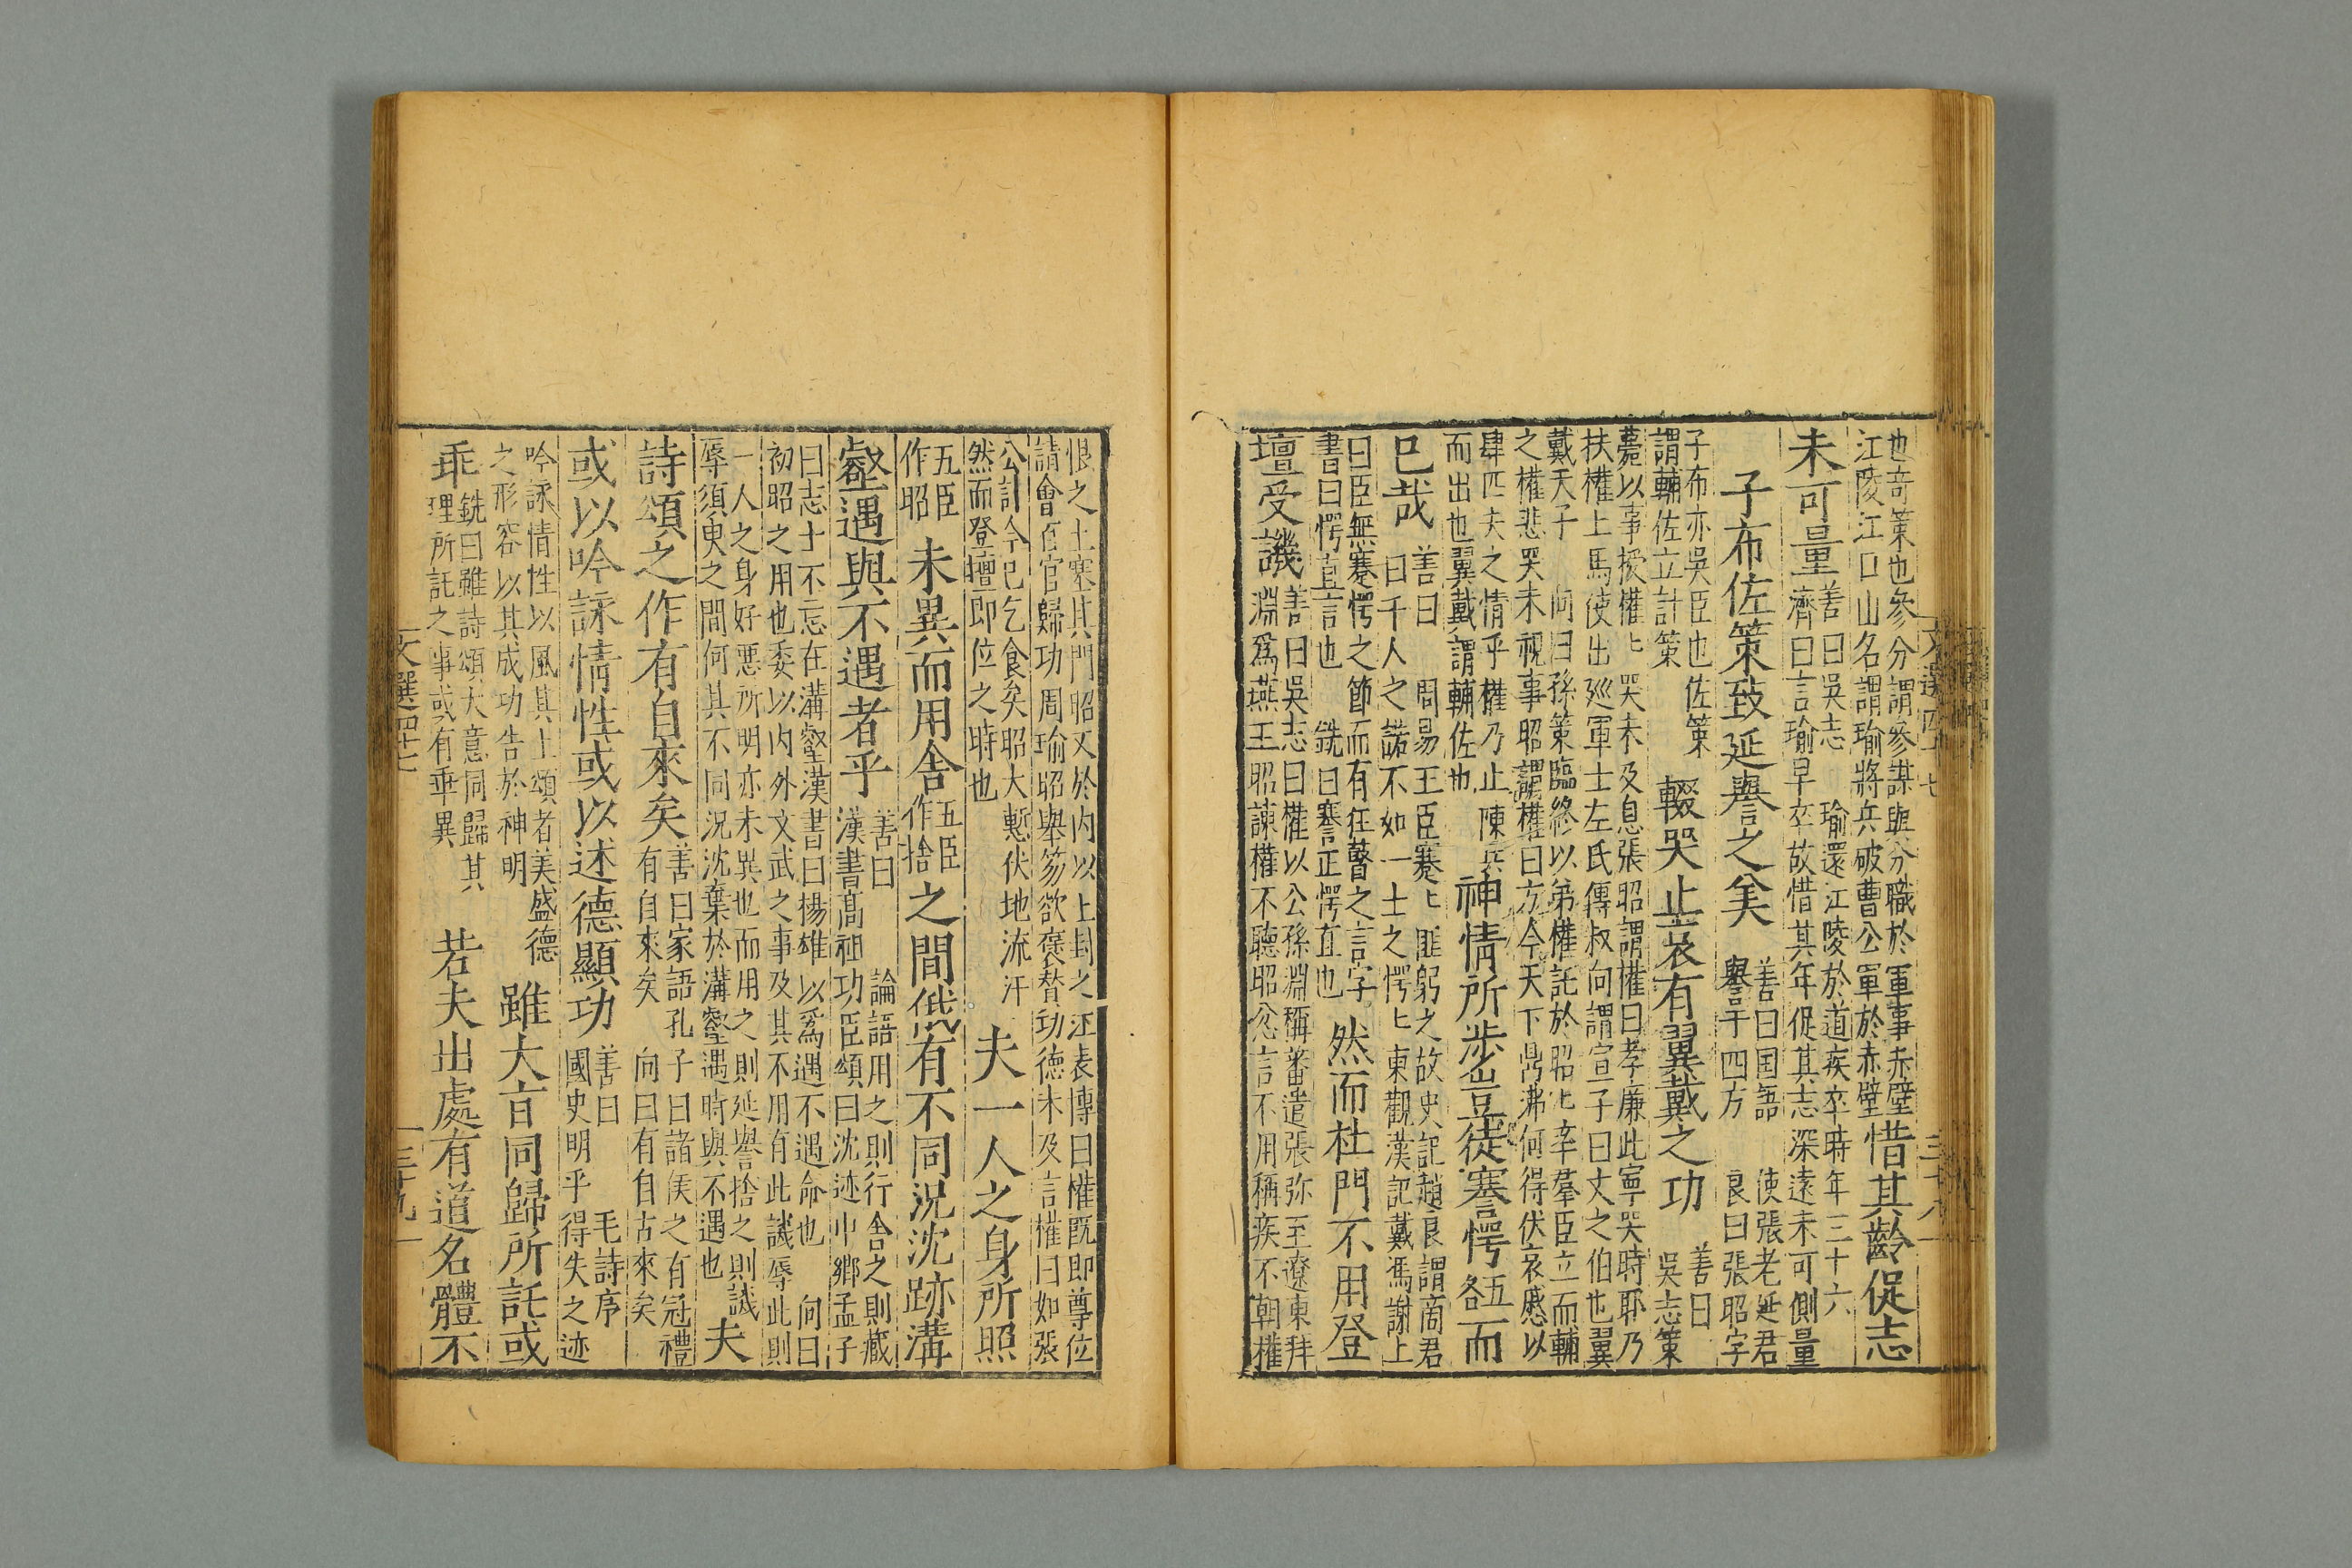 也竒策也參分謂參謀與分職於軍事赤壁
江陵江口山名謂瑜將兵破曹公軍於赤壁
惜其齡促志
未可量
善曰吳志 瑜還江陵於道疾卒時年三十六
濟曰言瑜早卒故惜其年促其志深遠未可側量
子布佐策致延譽之美
善曰国語 使張老延君
譽于四方 良曰張昭字
子布亦吳臣也佐策
謂輔佐立計策
輟哭止哀有翼戴之功
善曰
吳志策
薨以事授權〻哭未及息張昭謂權曰孝廉此寧哭時耶乃
扶權上馬使出廵軍士左氏傳叔向謂宣子曰文之伯也翼
戴天子 向曰孫策臨終以弟權託於昭〻率羣臣立而輔
之權悲哭未視事昭謂權曰方今天下鼎沸何得伏哀慼以
肆匹夫之情乎權乃止陳兵
而出也翼戴謂輔佐也
神情所涉豈徒謇愕
五
各
而
已哉
善曰 周易王臣蹇〻匪躬之故史記趙良謂商君
曰千人之諾不如一士之愕〻東觀漢記戴馮謝上
曰臣無蹇愕之節而有狂瞽之言字
書曰愕直言也 銑曰謇正愕直也
然而杜門不用登
壇受譏
善曰吳志曰權以公孫淵稱蕃遣張弥至遼東拜
淵爲燕王昭諫權不聽昭忿言不用稱疾不朝權
恨之土塞其門昭又於内以土封之江表傳曰權既即尊位
請會百官歸功周瑜昭舉笏欲襃贊功德未及言權曰如張
公計今已乞食矣昭大慙伏地流汗
然而登壇即位之時也
夫一人之身所照
五臣
作昭
未異而用舎
五臣
作捨
之間俄有不同況沈跡溝
壑遇與不遇者乎
善曰 論語用之則行舎之則藏
漢書髙祖功臣頌曰沈迹中鄉孟子
曰志士不忘在溝壑漢書曰揚雄以爲遇不遇命也 向曰
初昭之用也委以内外文武之事及其不用有此譏辱此則
一人之身好惡所明亦未異也而用之則延譽捨之則譏
辱須臾之間何其不同況沈棄於溝壑遇時與不遇也
夫
詩頌之作有自來矣
善曰家語孔子曰諸侯之有冠禮
有自來矣 向曰有自古來矣
或以吟詠情性或以述德顯功
善曰 毛詩序
國史明乎得失之迹
吟詠情性以風其上頌者美盛德
之形容以其成功告於神明
雖大盲同歸所託或
乖
銑曰雖詩頌大意同歸其
理所託之事或有乖異
若夫出處有道名體不
文選四十七
三十九